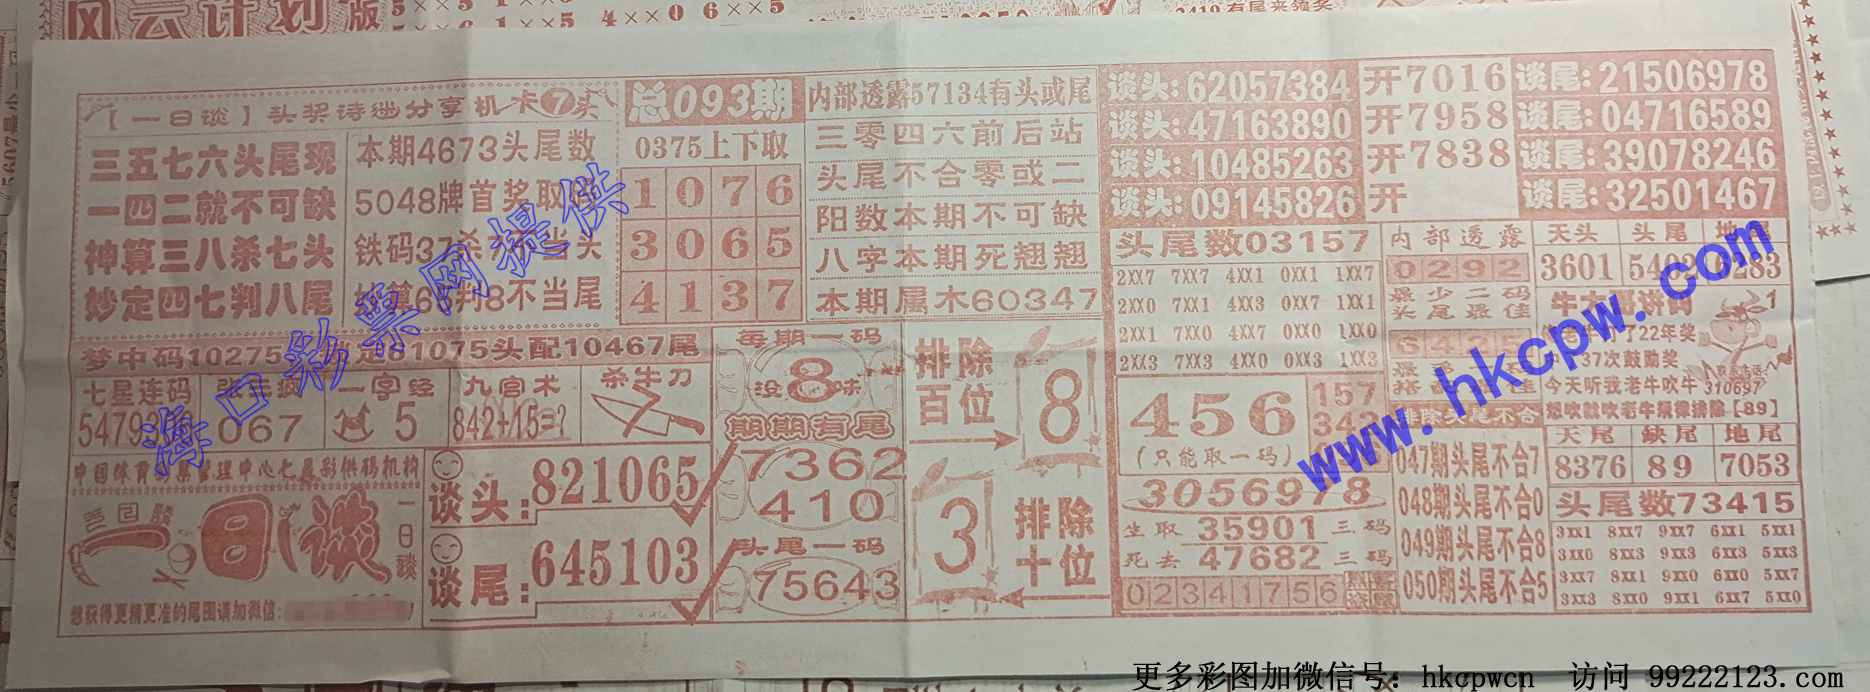 风云计划版
【一日谈】头奖诗谜分享机一卡7头
三五七六头尾现
一四二就不可缺
神算三八杀七头
妙定四七判八尾
本期4673头尾数
5048牌首奖取
铁码37杀 当头
判8不当尾
总093期
0375上下取
1 0 7 6
3 0 6 5
4 1 3 7
内部透露57134有头或尾
三零四六前后站
头尾不合零或二
阳数本期不可缺
八字本期死翘翘
本期属木60347
谈头:62057384 开7016 谈尾:21506978
谈头:47163890 开7958 谈尾:04716589
谈头:10485263 开7838 谈尾:39078246
谈头:09145826 开 谈尾:32501467
梦中码10275 81075头配10467尾
七星连码
5479
067
一字经
5
九宫术
842+15=?
杀牛刀
每期一码
没8味
期期有尾
7362
410
头尾一码
75643
排除
百位
8
3
排除
十位
一日谈
一日談
想获得更精更准的尾图请加微信:
谈头:821065
谈尾:645103
头尾数03157
2XX7 7XX7 4XX1 0XX1 1XX7
2XX0 7XX1 4XX3 0XX7 1XX1
2XX1 7XX0 4XX7 0XX0 1XX0
2XX3 7XX3 4XX0 0XX3 1XX3
456
157
343
(只能取一码)
3056978
生取35901三码
死去47682三码
0 2 3 4 1 7 5 6
内部透露
0292
最少二码
头尾最佳
排除头尾不合
047期头尾不合7
048期头尾不合0
049期头尾不合8
050期头尾不合5
天头 头尾 地尾
3601
牛大哥讲码
了22年奖
37次鼓励奖
今天听我老牛吹牛
310697
想吹就吹老牛泉律排除【89】
天尾 缺尾 地尾
8376 89 7053
头尾数73415
3XX1 8XX7 9XX7 6XX1 5XX1
3XX0 8XX3 9XX3 6XX3 5XX3
3XX7 8XX1 9XX0 6XX0 5XX7
3XX3 8XX0 9XX1 6XX7 5XX0
海口彩票网提供
www.hkcpw.com
更多彩图加微信号: hkcpwcn 访问 99222123.com